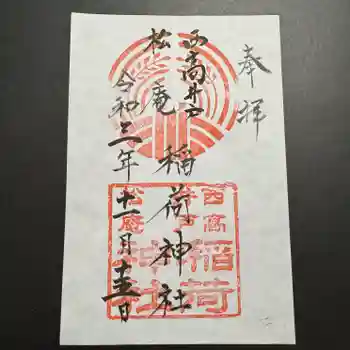 奉拝
西高井戸
松庵稲荷神社
令和三年十一月十五日
西高
井戸
松庵
稲荷
神社